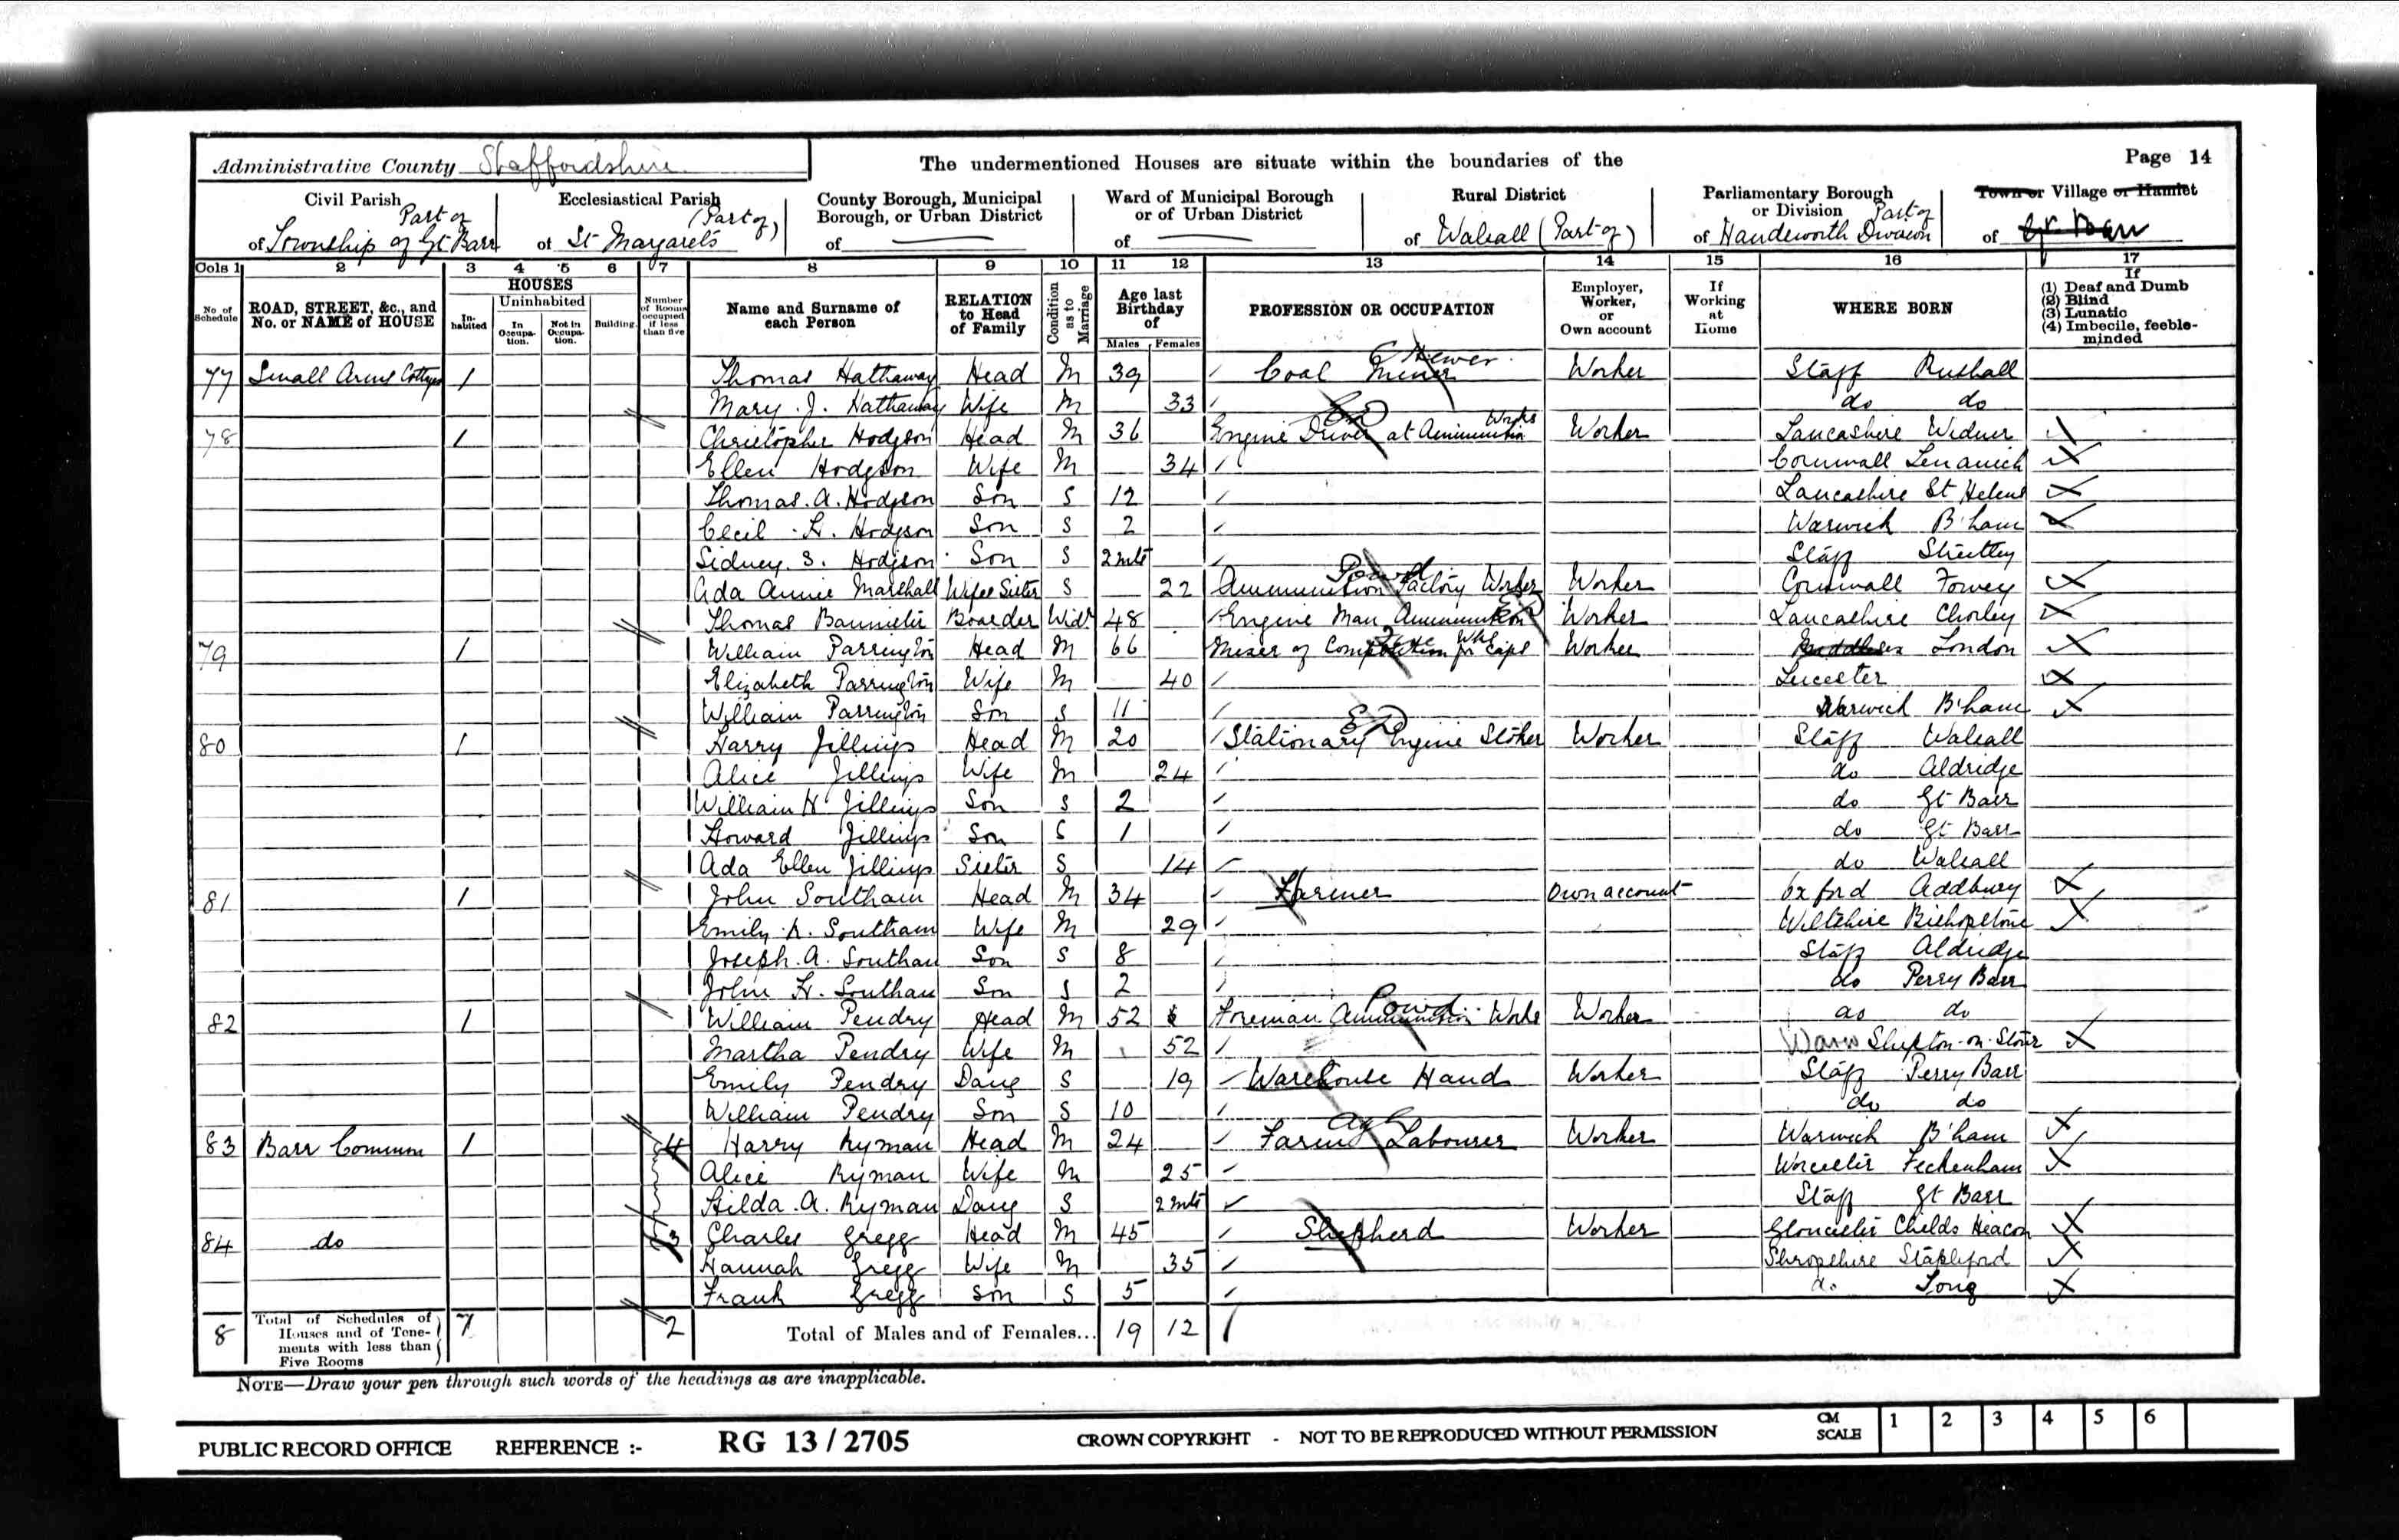 Administrative County Staffordshire
The undermentioned Houses are situate within the boundaries of the
Page 14
Civil Parish Part of
of Township of Gt Barr
Ecclesiastical Parish (Part of)
of St Margaret's
County Borough, Municipal Borough, or Urban District
of —
Ward of Municipal Borough or of Urban District
of —
Rural District
of Walsall (Part of)
Parliamentary Borough or Division Part of
of Handsworth Division
Town or Village or Hamlet
of Gt. Barr
Cols 1 2 3 4 5 6 7 8 9 10 11 12 13 14 15 16 17
No of Schedule
ROAD, STREET, &c., and No. or NAME of HOUSE
HOUSES
In-habited
Uninhabited
In Occupa-tion.
Not in Occupa-tion.
Building.
Number of Rooms occupied if less than five
Name and Surname of each Person
RELATION to Head of Family
Condition as to Marriage
Age last Birthday of
Males Females
PROFESSION OR OCCUPATION
Employer, Worker, or Own account
If Working at Home
WHERE BORN
If
(1) Deaf and Dumb
(2) Blind
(3) Lunatic
(4) Imbecile, feeble-minded
77 Small Arms Cottages 1 Thomas Hathaway Head M 39 Coal Miner Hewer Worker Staff Rushall
Mary J. Hathaway Wife M 33 do do
78 1 Christopher Hodgson Head M 36 Engine Driver at Ammunition Works Worker Lancashire Widnes
Ellen Hodgson Wife M 34 Cornwall
Thomas. A. Hodgson Son S 12 Lancashire St Helens
Cecil Hodgson Son S 2 Warwick B'ham
Sidney. S. Hodgson Son S 2 mts Staff Streetley
Ada Annie Marshall Wifes Sister S 22 Ammunition Factory Worker Worker Cornwall Fowey
Thomas Bannister Boarder Widr 48 Engine Man Ammunition Worker Lancashire Chorley
79 1 William Parrington Head M 66 Mixer of Composition for Caps Worker Middlesex London
Elizabeth Parrington Wife M 40 Leicester
William Parrington Son S 11 Warwick B'ham
80 1 Harry Jillings Head M 20 Stationary Engine Stoker Worker Staff Walsall
Alice Jillings Wife M 24 do Aldridge
William H Jillings Son S 2 do Gt Barr
Howard Jillings Son S 1 do Gt Barr
Ada Ellen Jillings Sister S 14 do Walsall
81 1 John Southam Head M 34 Farmer Own account Oxford Addbury
Emily A. Southam Wife M 29 Wiltshire Bishopstone
Joseph. A. Southam Son S 8 Staff Aldridge
John H. Southam Son S 2 do Perry Barr
82 1 William Pendry Head M 52 Foreman Ammunition Works Powd Worker do do
Martha Pendry Wife M 52 Warw Shipton-on-Stour
Emily Pendry Daug S 19 Warehouse Hand Worker Staff Perry Barr
William Pendry Son S 10 do do
83 Barr Common 1 4 Harry Ryman Head M 24 Farm Labourer Ag Worker Warwick B'ham
Alice Ryman Wife M 25 Worcester Feckenham
Hilda. A. Ryman Daug S 2 mts Staff Gt Barr
84 do 3 Charles Gregg Head M 45 Shepherd Worker Gloucester Childs
Hannah Gregg Wife M 35 Shropshire Stapleford
Frank Gregg Son S 5 do Tong
8 Total of Schedules of Houses and of Tene-ments with less than Five Rooms 7 2 Total of Males and of Females... 19 12
NOTE—Draw your pen through such words of the headings as are inapplicable.
PUBLIC RECORD OFFICE REFERENCE :- RG 13 / 2705 CROWN COPYRIGHT - NOT TO BE REPRODUCED WITHOUT PERMISSION CM SCALE 1 2 3 4 5 6